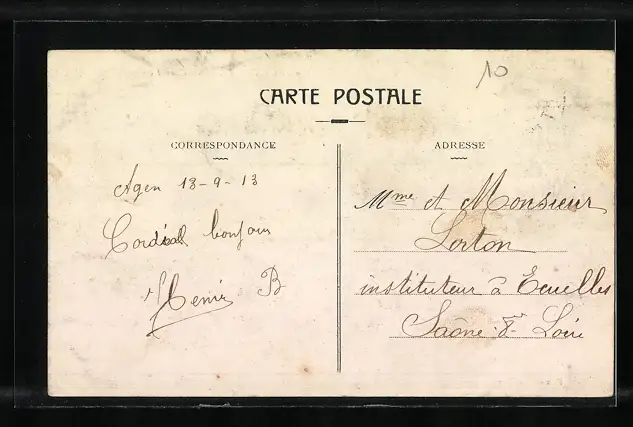 10
CARTE POSTALE
CORRESPONDANCE
Agen 18-9-13
Cordial bonjour
B
ADRESSE
Mme et Monsieur
Lorton
instituteur à Ecuelles
Saône & Loire